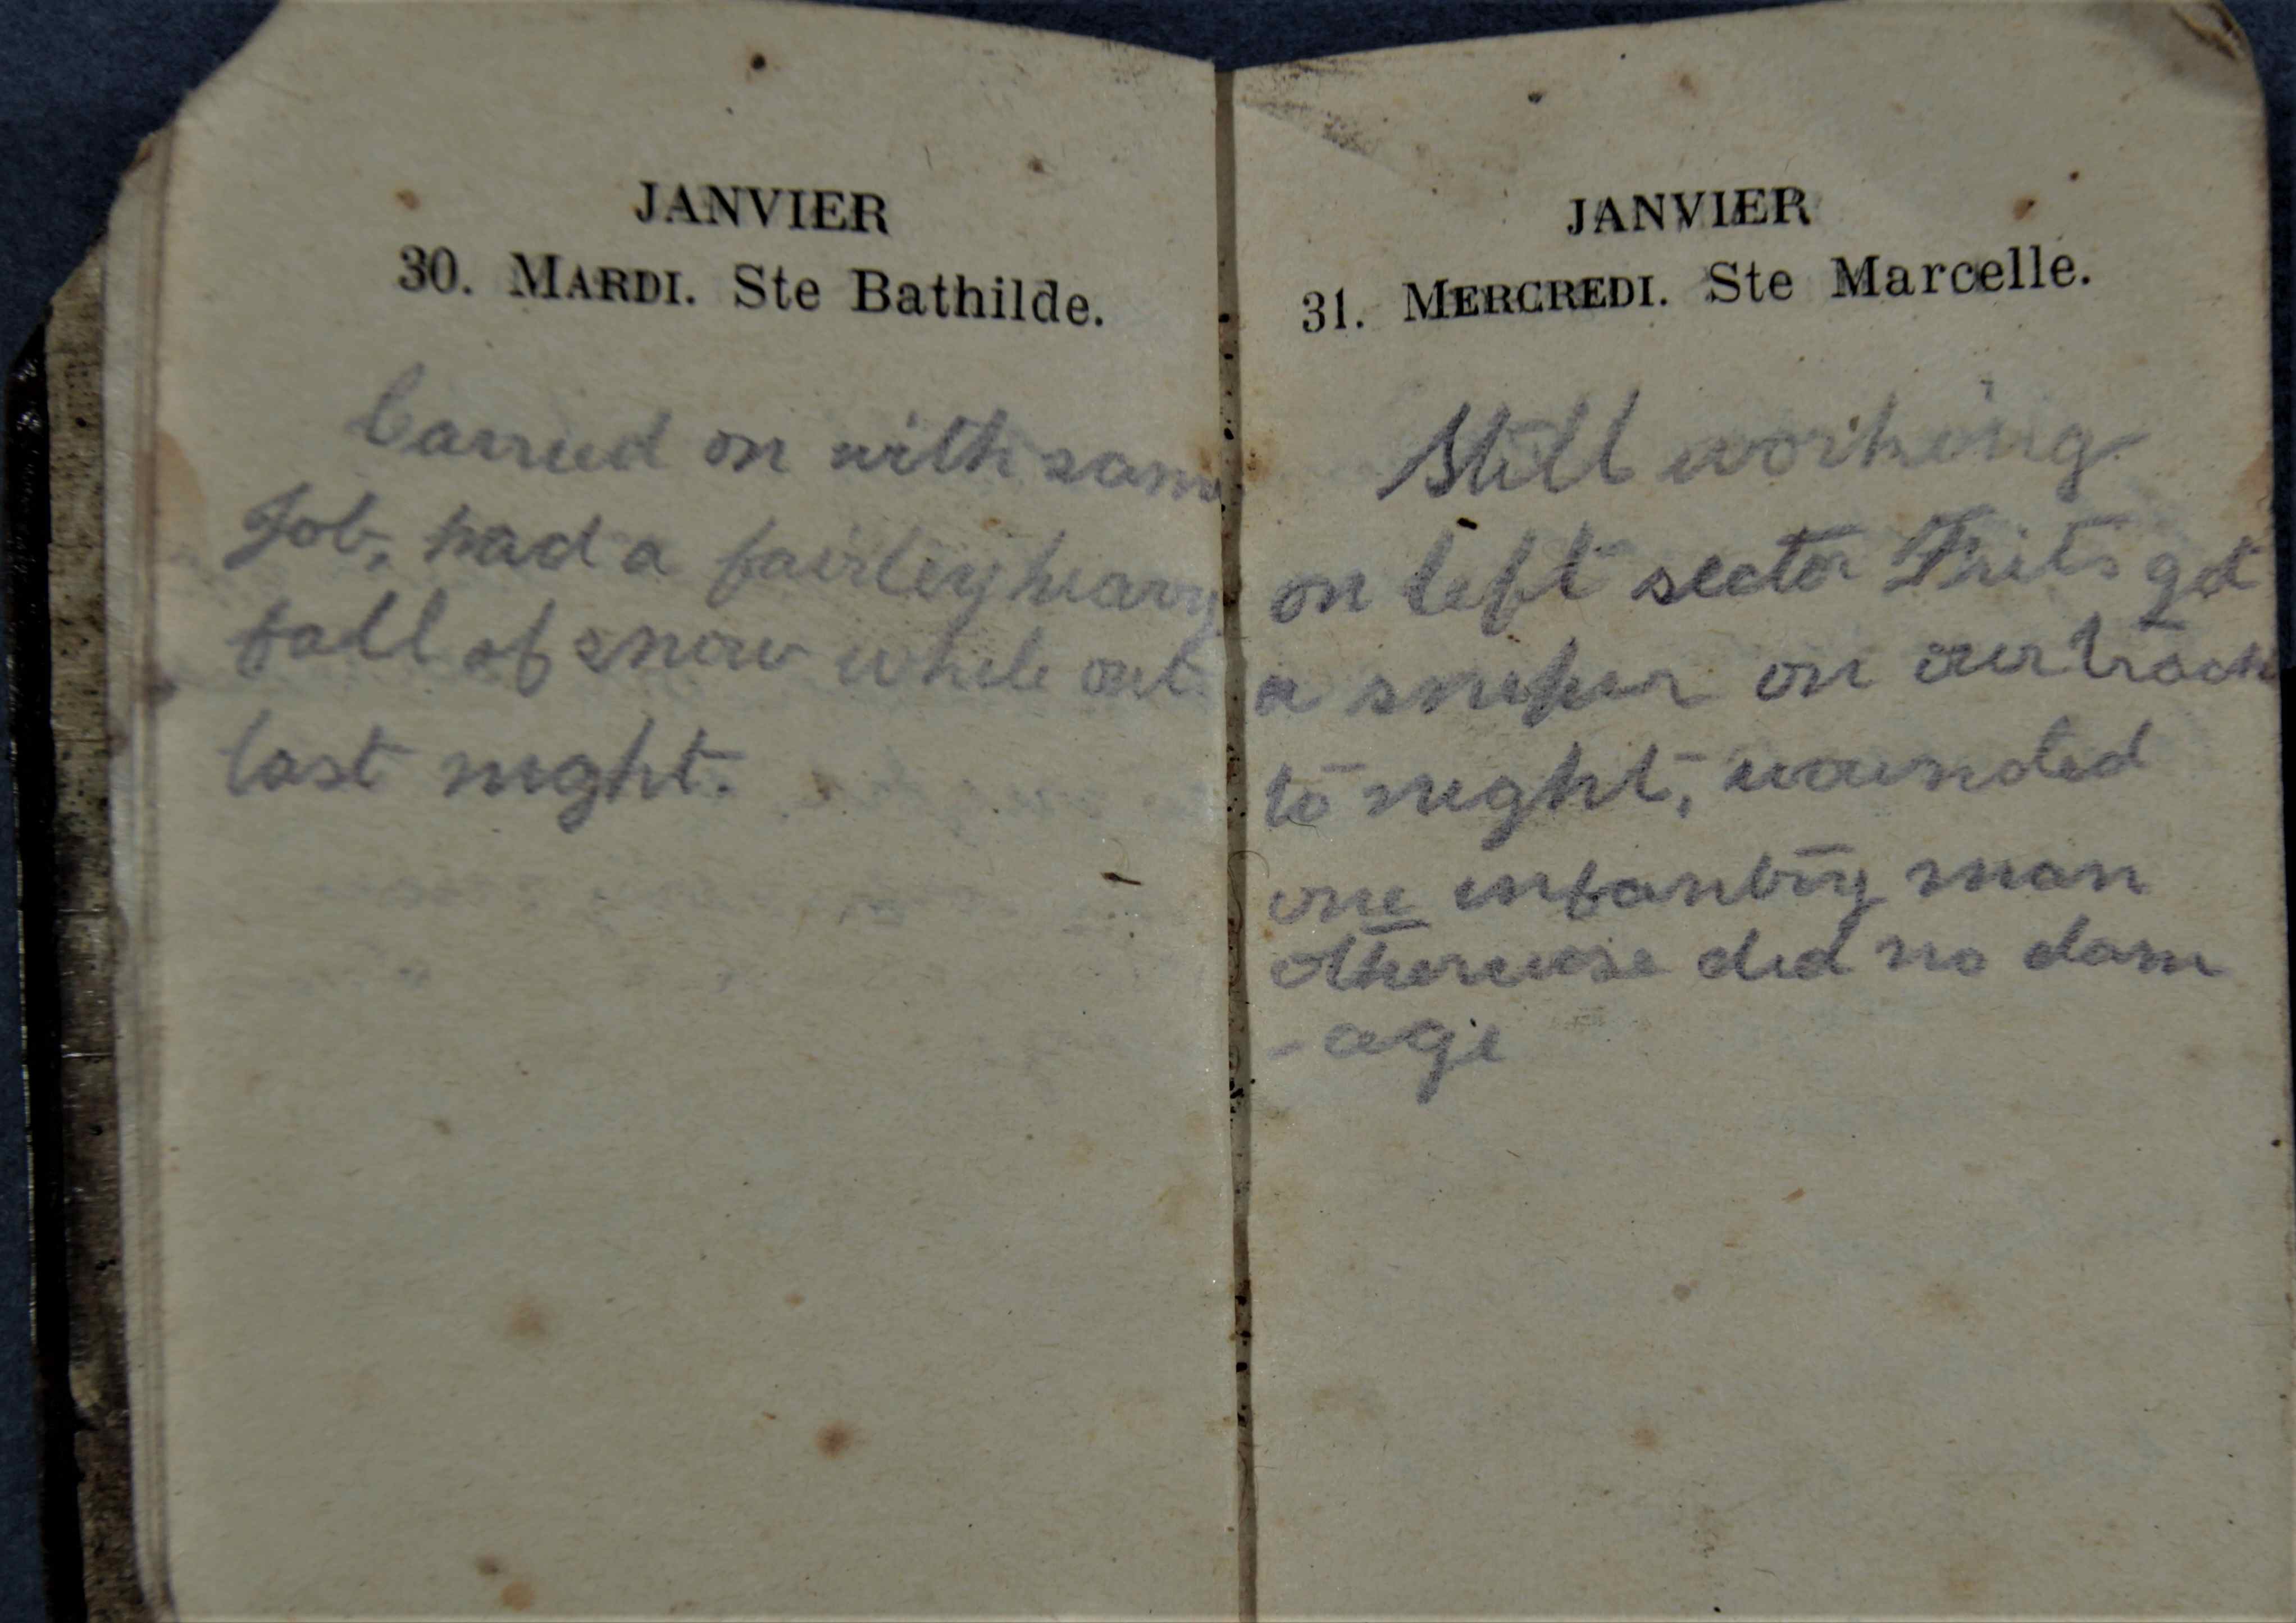 JANVIER
30. MARDI. Ste Bathilde.
Carried on with same
Job, had a fairley heavy
fall of snow while out
last night.
JANVIER
31. MERCREDI. Ste Marcelle.
Still working
on left sector Frits got
a sniper on our track
to night, wounded
one infantry man
otherwise did no dam
-age